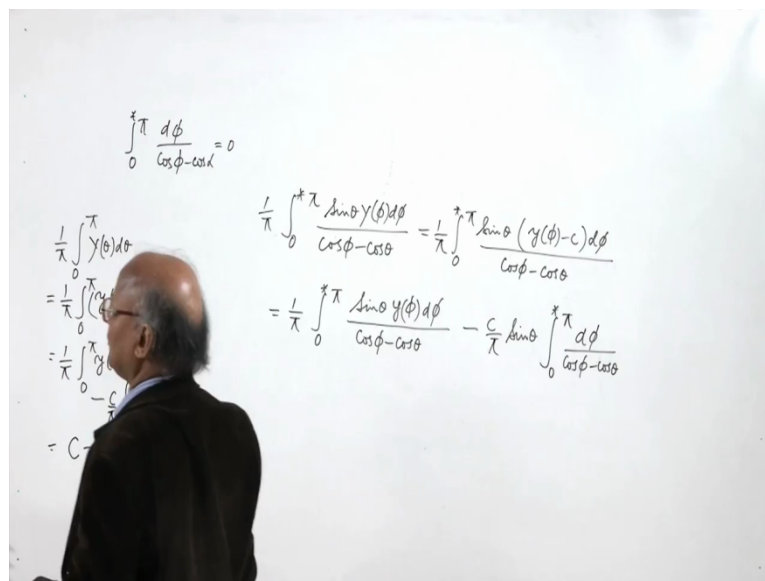 ∫₀^{*π} dφ / (cosφ − cosα) = 0
1/π ∫₀^π Y(θ)dθ
= 1/π ∫₀^π (y
= 1/π ∫₀^π y(
− c/
= C −
1/π ∫₀^{*π} sinθ Y(φ)dφ / (cosφ − cosθ) = 1/π ∫₀^{*π} sinθ (y(φ) − c)dφ / (cosφ − cosθ)
= 1/π ∫₀^{*π} sinθ y(φ)dφ / (cosφ − cosθ) − c/π sinθ ∫₀^{*π} dφ / (cosφ − cosθ)